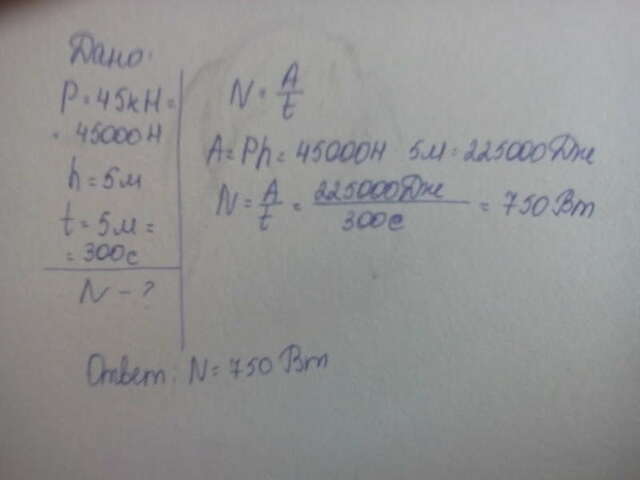 Дано:
P = 45кН =
= 45000Н
h = 5м
t = 5м =
= 300с
N - ?
N = A/t
A = Ph = 45000Н 5м = 225000Дж
N = A/t = 225000Дж/300с = 750Вт
Ответ: N = 750 Вт